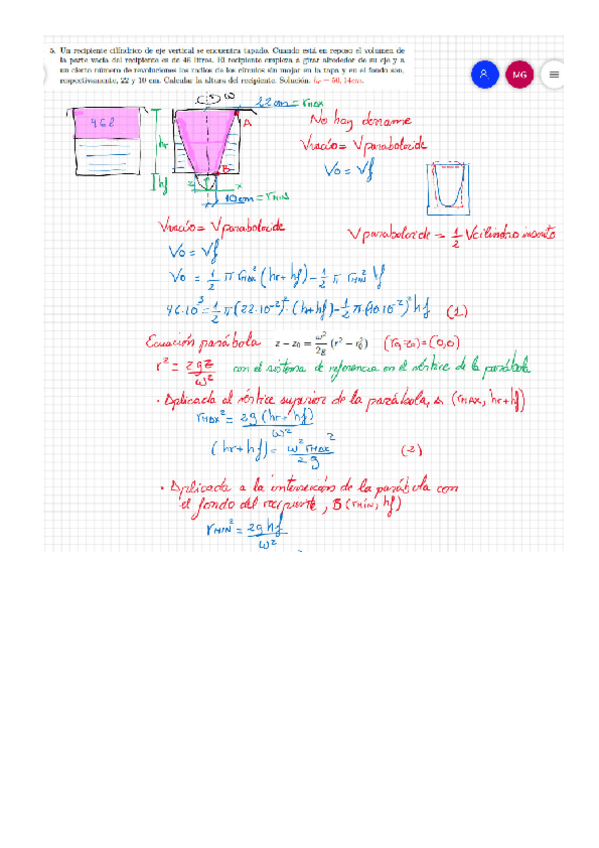 5. Un recipiente cilíndrico de eje vertical se encuentra tapado. Cuando está en reposo el volumen de
la parte vacía del recipiente es de 46 litros. El recipiente empieza a girar alrededor de su eje y a
un cierto número de revoluciones los radios de los círculos sin mojar en la tapa y en el fondo son,
respectivamente, 22 y 10 cm. Calcular la altura del recipiente. Solución: hr = 50, 14cm.
MG
ω
22cm = rmax
46l
A
hr
B
hf
z
x
10cm = rmin
No hay derrame
Vvacío = Vparaboloide
Vo = Vf
Vvacío = Vparaboloide
Vparaboloide = 1/2 Vcilindro
Vo = Vf
Vo = 1/2 π rmax² (hr+hf) - 1/2 π rmin² hf
46·10³ = 1/2 π(22·10⁻²)²·(hr+hf) - 1/2 π·(10·10⁻²)² hf (1)
Ecuación parábola z − z₀ = ω²/2g (r² − r₀²) (r₀, z₀) = (0,0)
r² = 2gz/ω² con el sistema de referencia en el vértice de la parábola
· Aplicada al vértice superior de la parábola, A (rmax, hr+hf)
rmax² = 2g (hr+hf)/ω²
(hr+hf) = ω² rmax²/2g (2)
· Aplicada a la intersección de la parábola con
el fondo del recipiente, B (rmin, hf)
rmin² = 2ghf/ω²